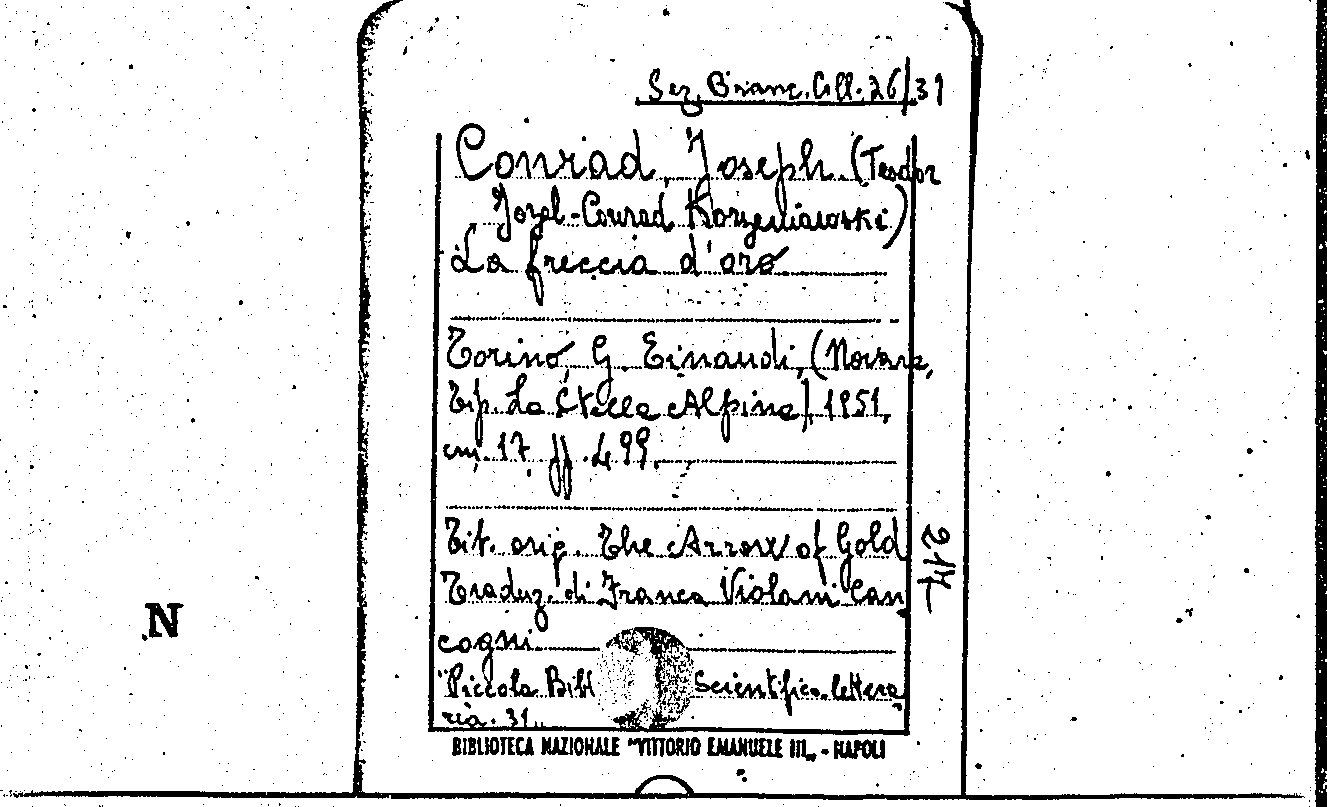 Sez. Branc. Coll. 26/31
Conrad, Joseph (Teodor
Jozef-Conrad Korzeniawski)
La freccia d'oro
Torino, G. Einaudi, (Novara,
Tip. La Stella Alpina) 1951,
cm. 17 pp. 499.
Tit. orig. The Arrow of Gold
Traduz. di Franca Violani Can
cogni.
"Piccola Bibl Scientifico-lettera
ria. 31"
217
N
BIBLIOTECA NAZIONALE "VITTORIO EMANUELE III„ - NAPOLI